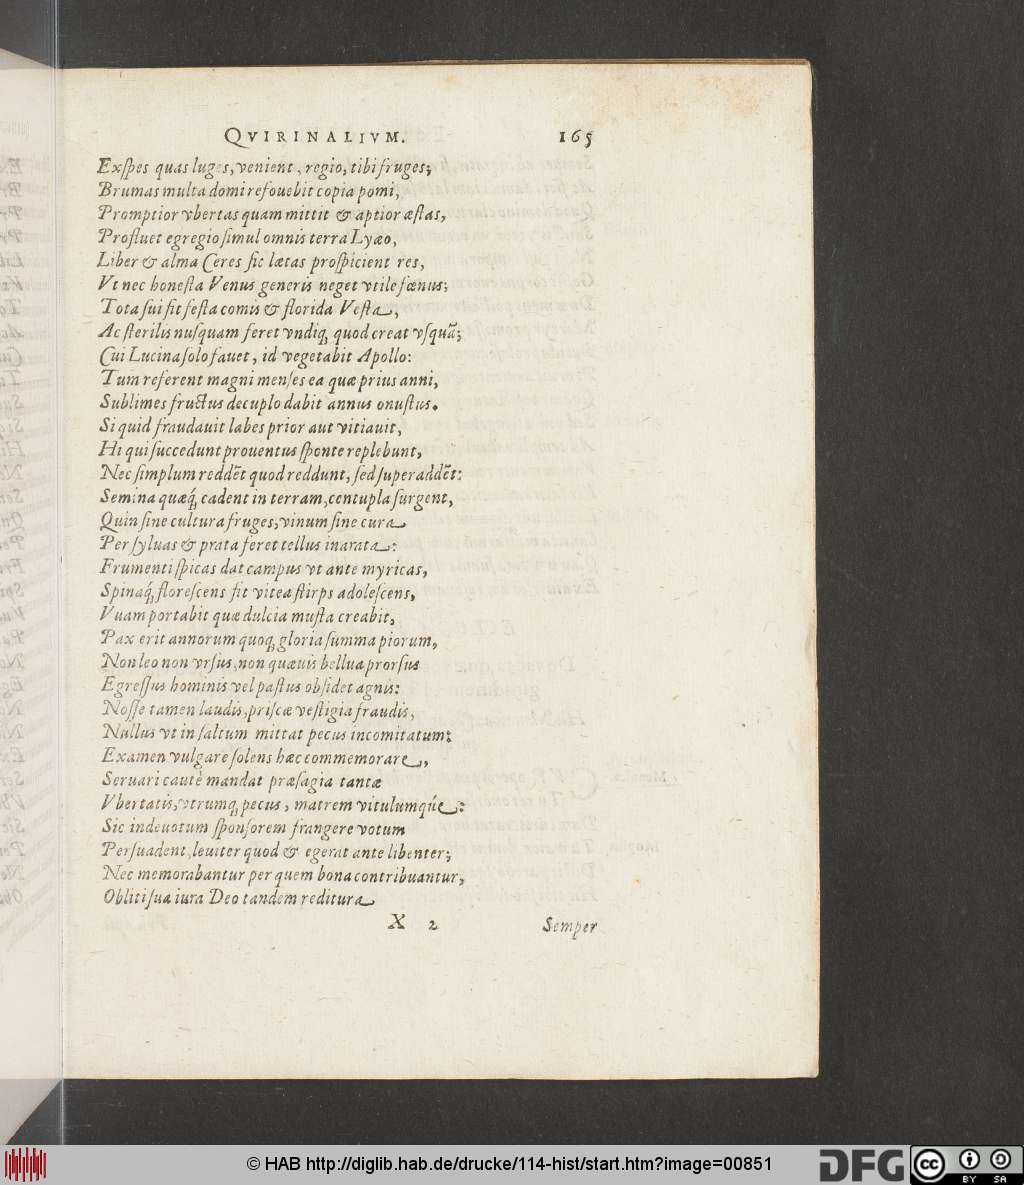 QVIRINALIVM. 165
Exſpes quas luges, venient, regio, tibi fruges;
Brumas multa domi refouebit copia pomi,
Promptior vbertas quam mittit & aptior æſtas,
Profluet egregio ſimul omnis terra Lyæo,
Liber & alma Ceres ſic lætas proſpicient res,
Vt nec honeſta Venus generis neget vtile fœnus;
Tota ſui fit feſta comis & florida Veſta,
Ac ſterilis nuſquam feret vndiq; quod creat vſquā;
Cui Lucina ſolo fauet, id vegetabit Apollo:
Tum referent magni menſes ea quæ prius anni,
Sublimes fructus decuplo dabit annus onuſtus.
Si quid fraudauit labes prior aut vitiauit,
Hi qui ſuccedunt prouentus ſponte replebunt,
Nec ſimplum reddēt quod reddunt, ſed ſuperaddēt:
Semina quæq́; cadent in terram, centupla ſurgent,
Quin ſine cultura fruges, vinum ſine cura
Per ſyluas & prata feret tellus inarata:
Frumenti ſpicas dat campus vt ante myricas,
Spinaq́; floreſcens fit vitea ſtirps adoleſcens,
Vuam portabit quæ dulcia muſta creabit,
Pax erit annorum quoq; gloria ſumma piorum,
Non leo non vrſus, non quæuis bellua prorſus
Egreſſus hominis vel paſtus obſidet agnis:
Noſſe tamen laudis, priſcæ veſtigia fraudis,
Nullus vt in ſaltum mittat pecus incomitatum:
Examen vulgare ſolens hæc commemorare,
Seruari cautè mandat præſagia tantæ
Vbertatis, vtrumq; pecus, matrem vitulumqúe:
Sic indeuotum ſponſorem frangere votum
Perſuadent, leuiter quod & egerat ante libenter;
Nec memorabantur per quem bona contribuantur,
Obliti ſua iura Deo tandem reditura
X 2 Semper
© HAB http://diglib.hab.de/drucke/114-hist/start.htm?image=00851
DFG
cc BY SA